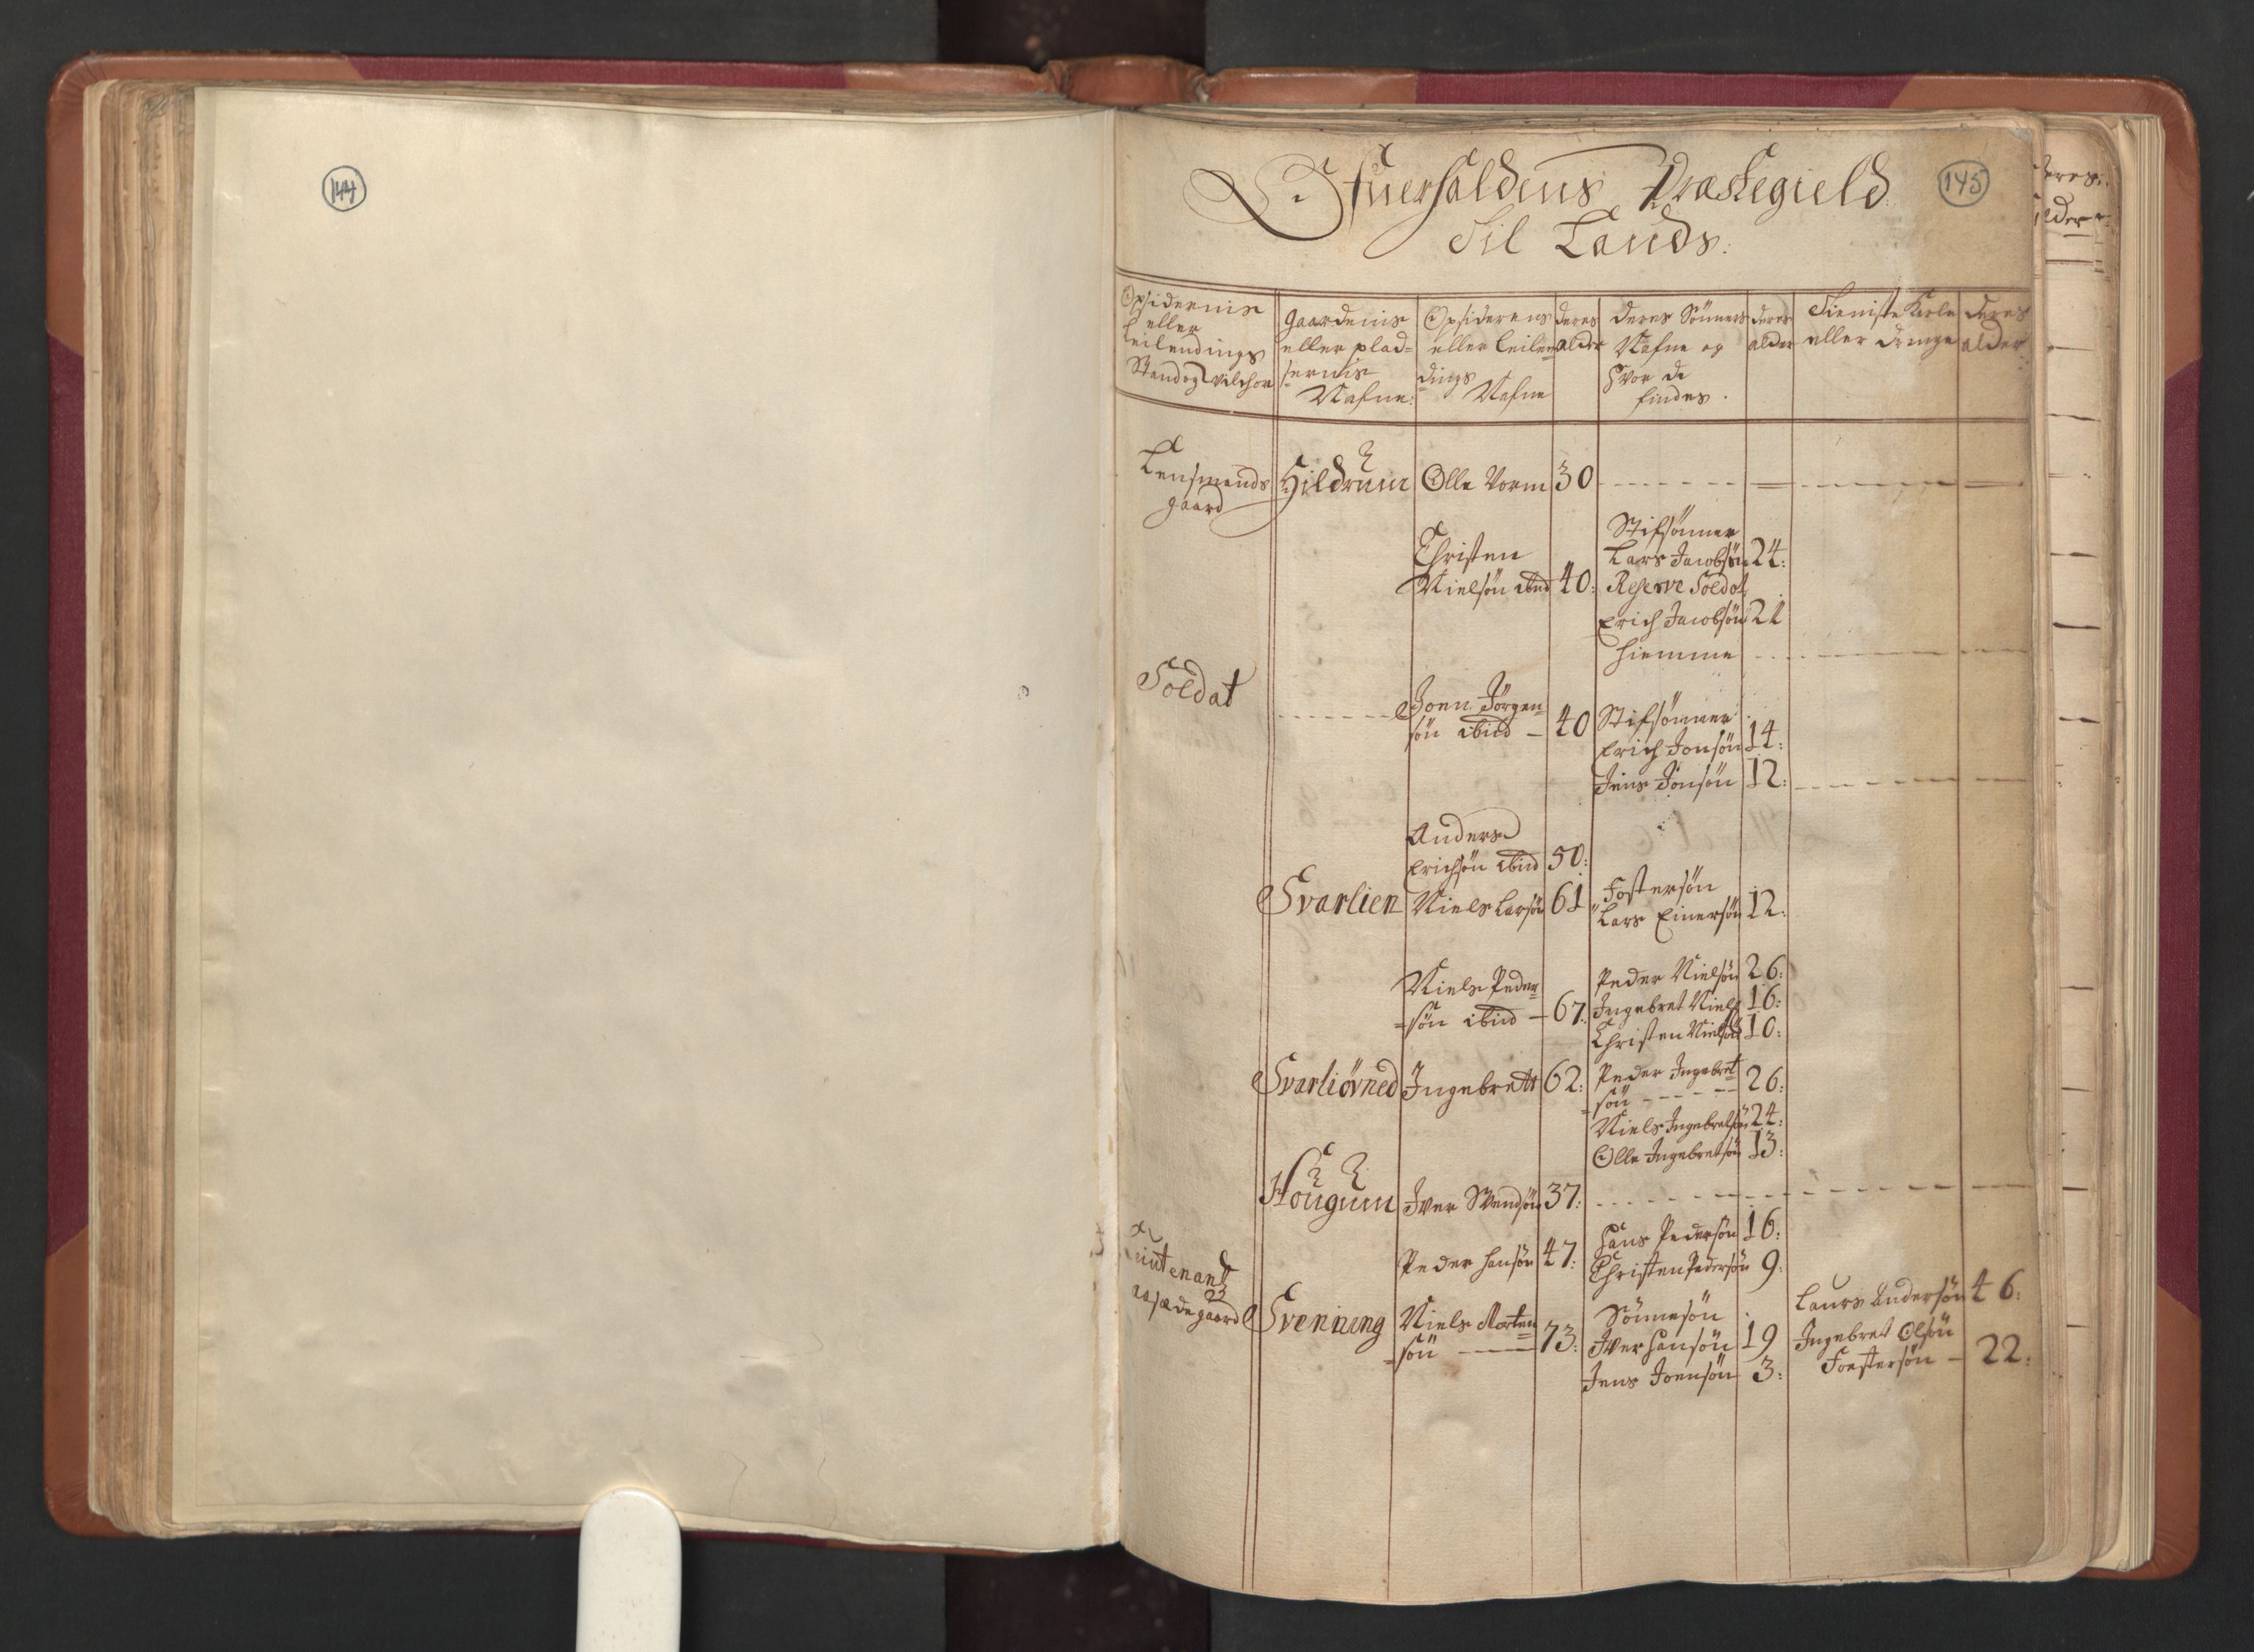 144
145
Ofuerhaldens Præstegield
Til Lands:
Opsidernis eller Leilendings Stand og Vilchor
Gaardenis eller pladsernis Nafne:
Opsiderens eller Leilendings Nafne
deres alder
deres Sönners Nafne og hvor de findes.
deres alder
Tieniste Karle eller drenge
deres alder
Lensmends gaard
Hildrum
Olle Vorm 30
Christen
Nielsön ibid 40:
Stifsönner
Lars Jacobsön 24:
Reserve Soldat
Erich Jacobsön 21
hiemme
Soldat
Joen Jörgen=
sön ibid - 40
Stifsönner
Erich Jonsön 14:
Jens Jonsön 12:
Anders
Erichsön ibid 50:
Svarlien
Niels Larsön 61
Fostersön
Lars Einersön 12:
Niels Peder=
=sön ibid - 67:
Peder Nielsön 26:
Ingebret Niels 16:
Christen Nielsön 10:
Svarliövned
Ingebrett 62:
Peder Ingebret
=sön 26:
Niels Ingebretsön 24:
Olle Ingebretsön 13:
Hougum
Iver Svendsön 37:
Peder Hansön 47:
Hans Pedersön 16:
Christen Pedersön 9:
Leutenant
gaard
Svenning
Niels Morten
=sön 73:
Sönnesön
Iver Hansön 19
Jens Joensön 3:
Laurs Andersön 46:
Ingebret Olsön
Fostersön - 22:
deres:
alder